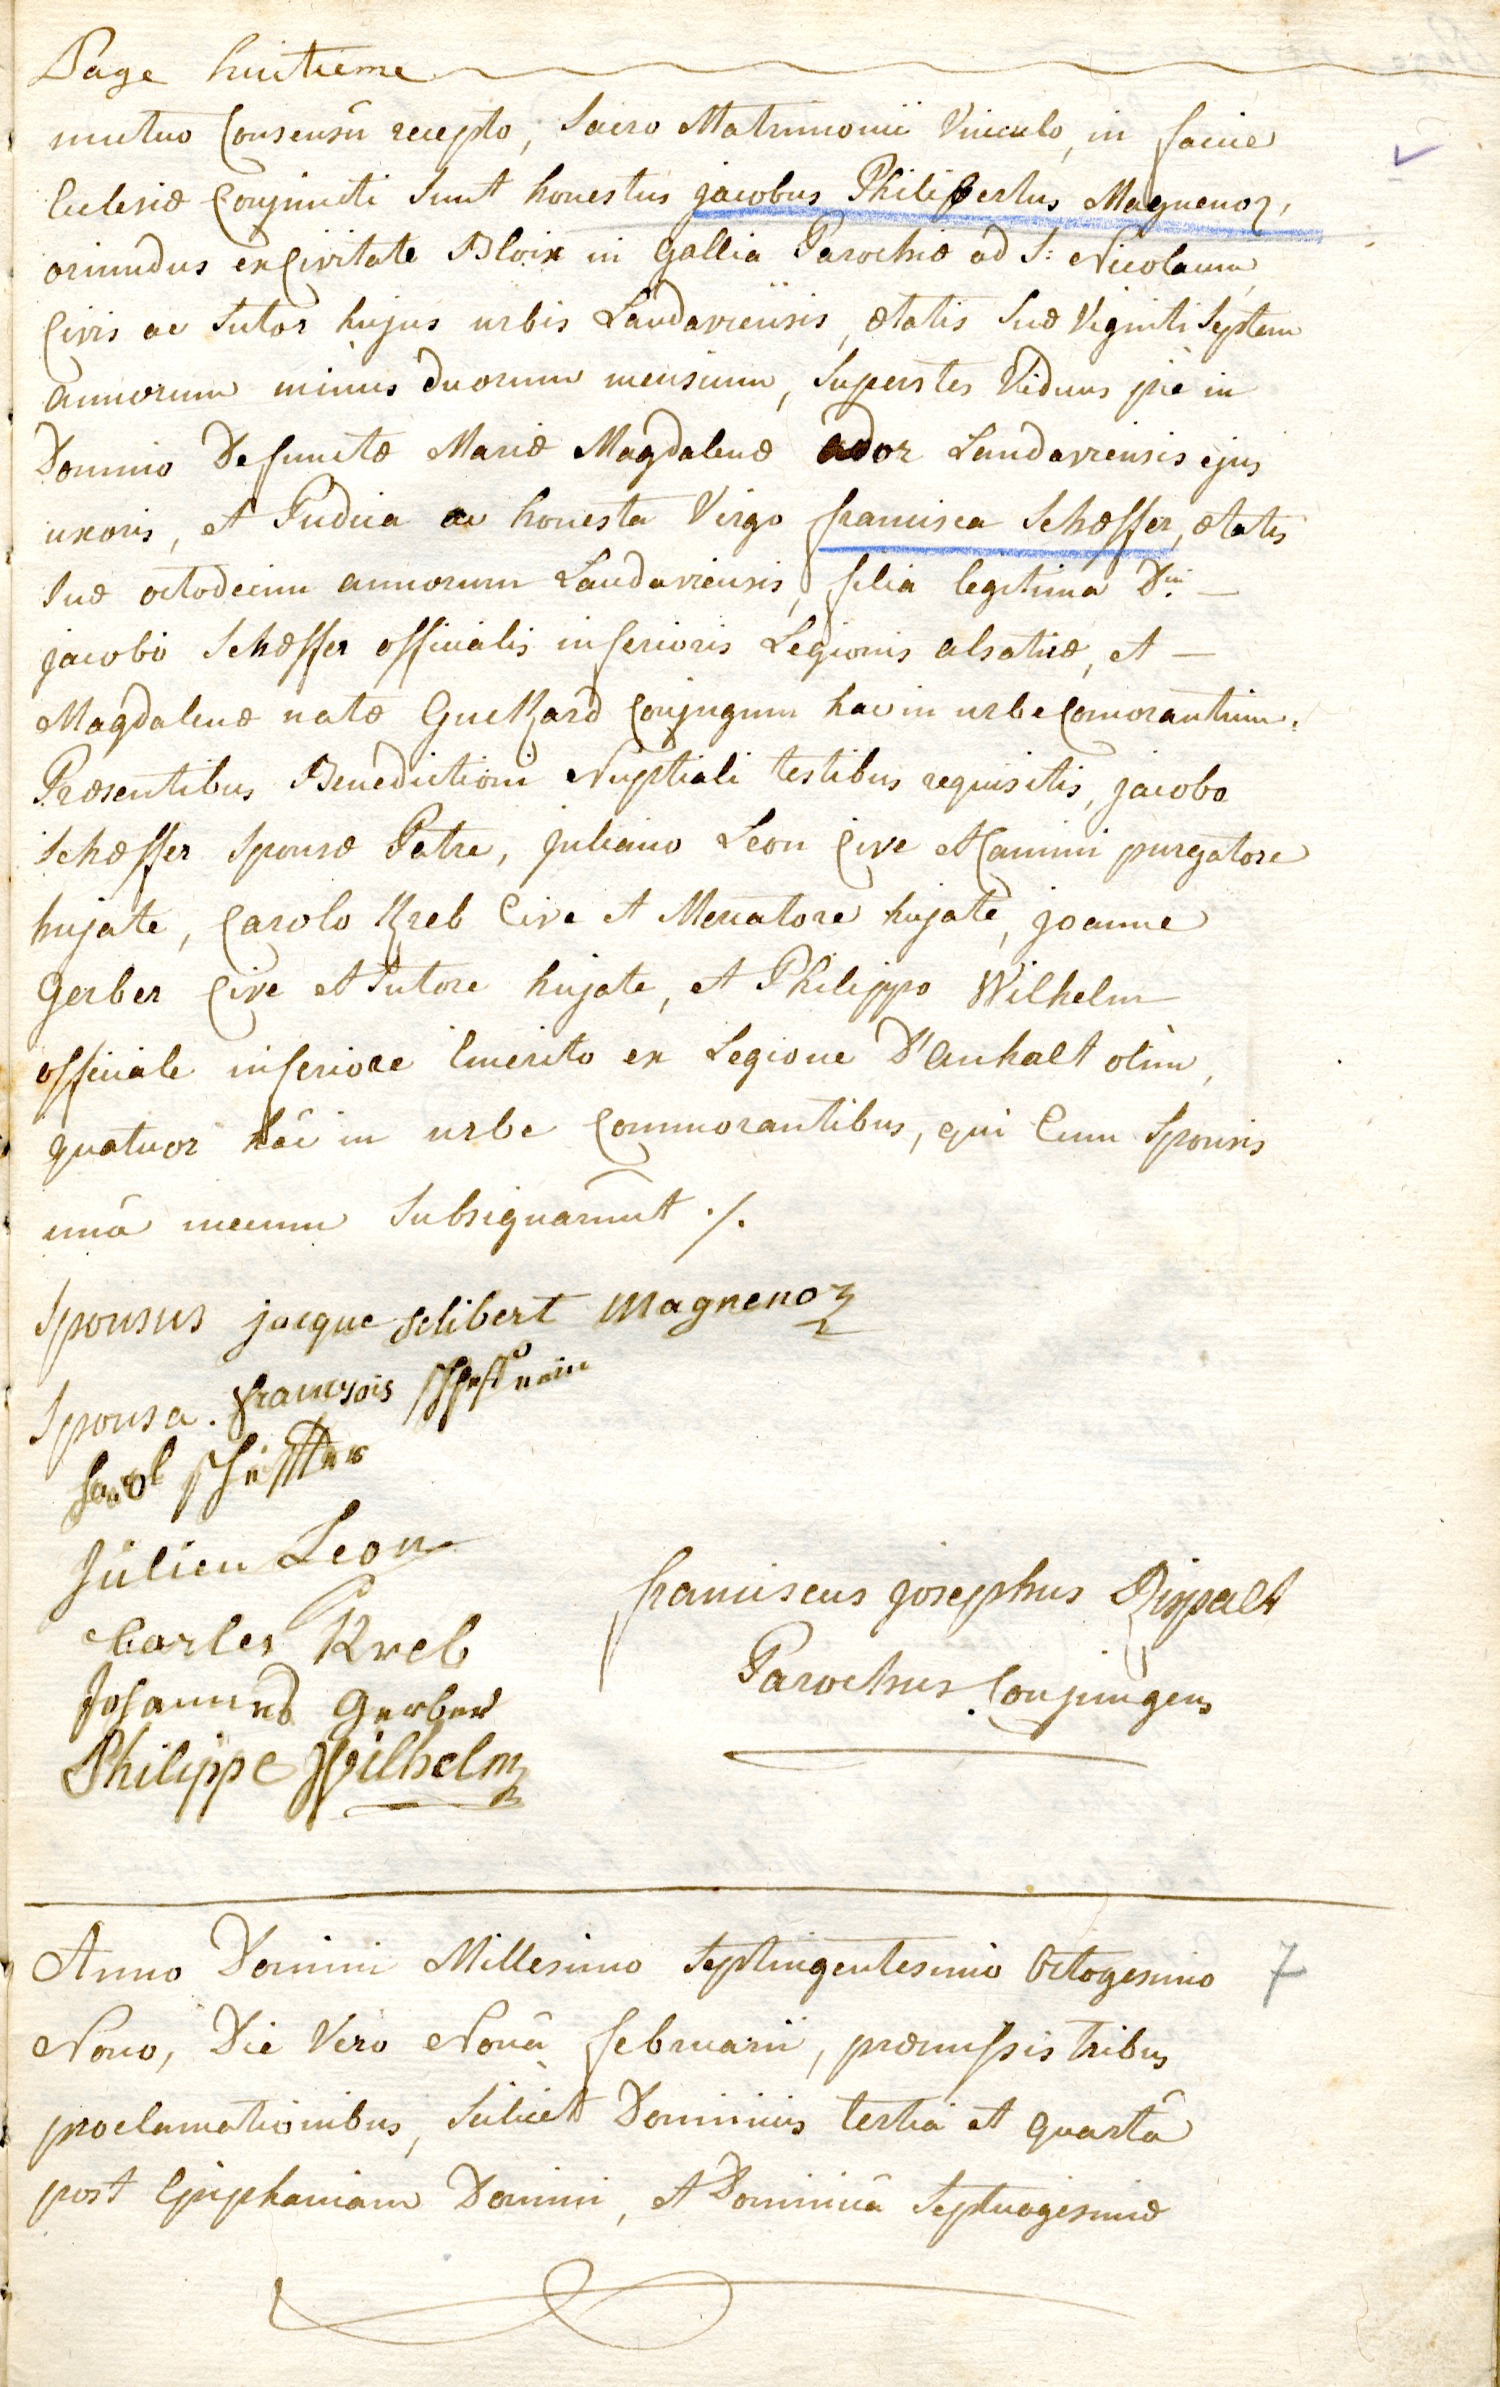 Page huitieme
mutuo Consensû recepto, Sacro Matrimonii Vinculo, in facie
Ecclesiæ Conjuncti sunt honestus jacobus Philibertus Magnenoz,
oriundus ex Civitate Bloix in Gallia Parochiæ ad S: Nicolaum,
Civis ac Sutor hujus urbis Landaviensis, ætatis suæ Viginti Septem
annorum minus duorum mensium, Superstes Viduus piè in
Domino Defunctæ Mariæ Magdalenæ ador Landaviensis ejus
uxoris, et Pudica ac honesta Virgo francisca Schæffer, ætatis
suæ octodecim annorum Landaviensis, filia legitima Dni. —
jacobi Schæffer officialis inferioris Legionis alsatiæ, et —
Magdalenæ natæ Guckhard Conjugum hac in urbe Comorantium.
Præsentibus Benedictioni Nuptiali testibus requisitis, jacobo
Schæffer Sponsæ Patre, juliano Leon Cive et Camini purgatore
hujate, Carolo Kreb Cive et Mercatore hujate, joanne
Gerber Cive et Sutore hujate, et Philippo Wilhelm
officiale inferiore Emerito ex Legione D'anhalt olim,
quatuor hâc in urbe Commorantibus, qui Cum Sponsis
unâ mecum Subsignarunt ./.
Sponsus jacque felibert Magnenoz
Sponsa. francsois
Jacob Scheffer
Julien Leon
Carles Kreb
franciscus josephus
Johannes Gerber
Parochus Conjungens
Philippe Wilhelm
Anno Domini Millesimo Septingentesimo Octogesimo 7
Nono, Die Vero Nonâ februarii, præmissis tribus
proclamationibus, Scilicet Dominicis tertia et quartâ
post Epiphaniam Domini, et Dominicâ Septuagesimæ